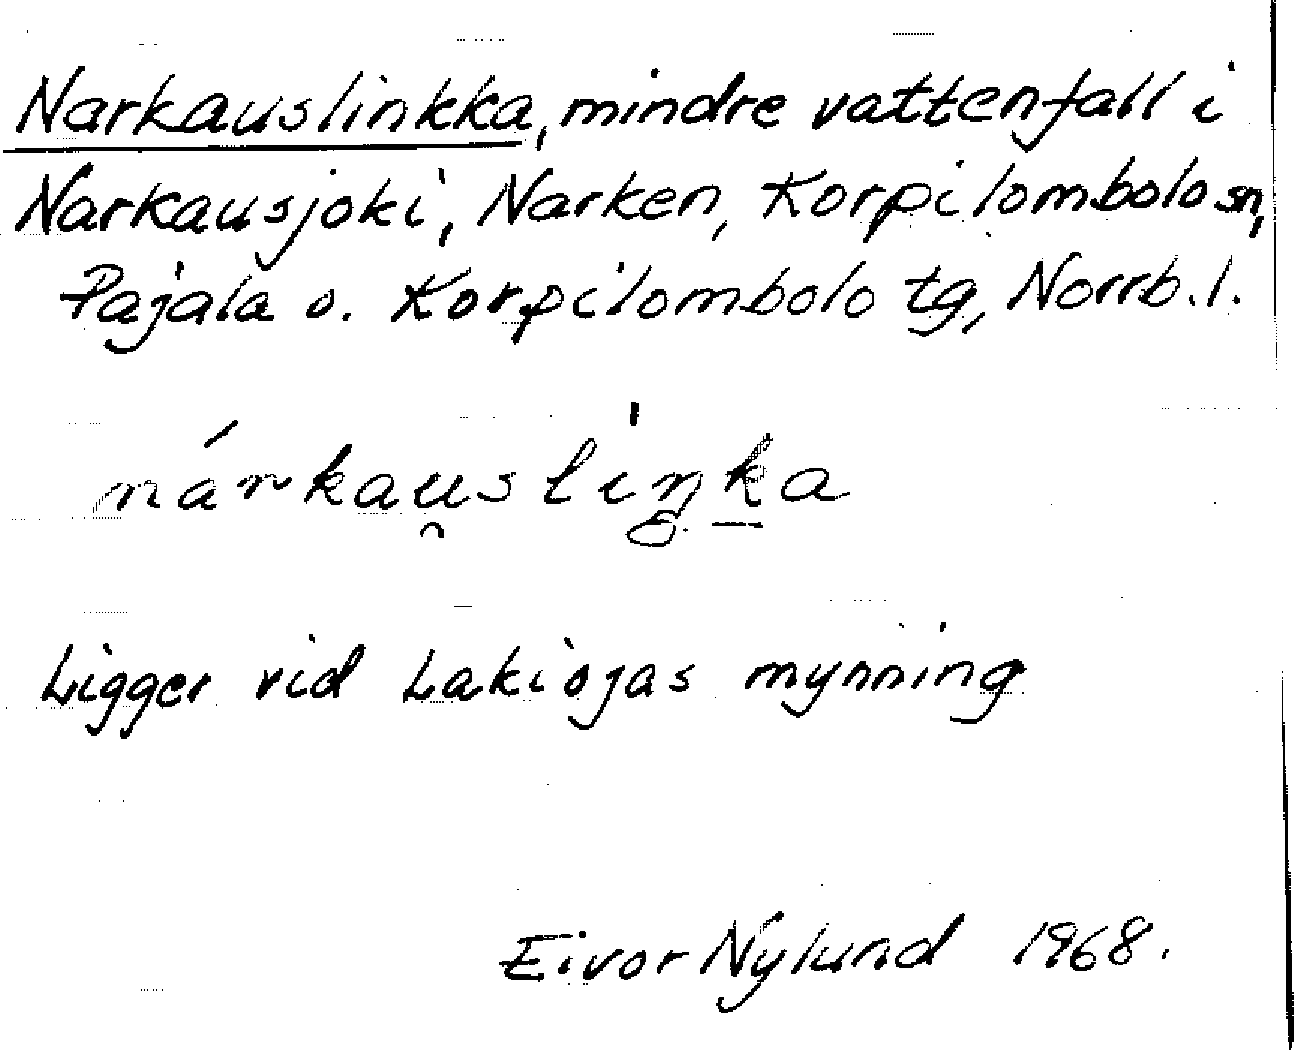 Narkauslinkka, mindre vattenfall i
Narkausjoki, Narken, Korpilombolo sn,
Pajala o. Korpilombolo tg, Norrb. l.
nárkau̯sliŋk̲a
Ligger vid Lakiojas mynning
Eivor Nylund 1968.